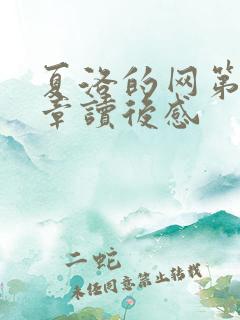 夏洛的网第
章讀後感
二蛇
未经同意禁止转载